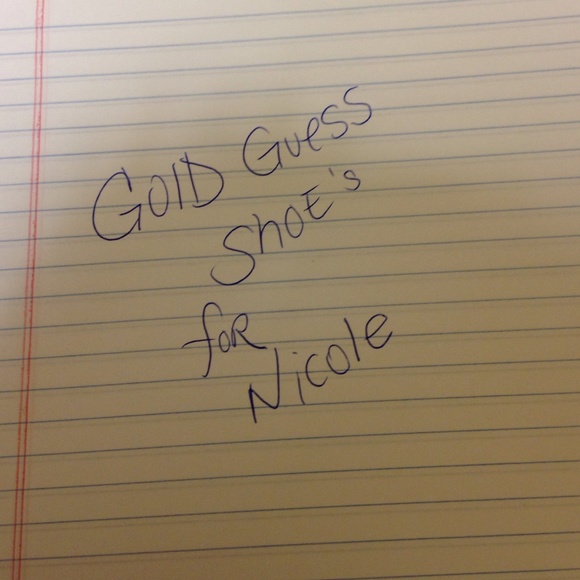 GOlD Guess
Shoe's
foR
Nicole